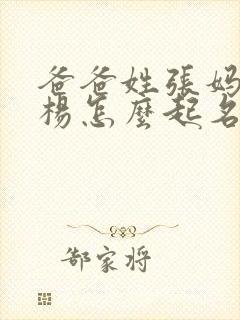 爸爸姓張妈
楊怎麼起名
郜家将